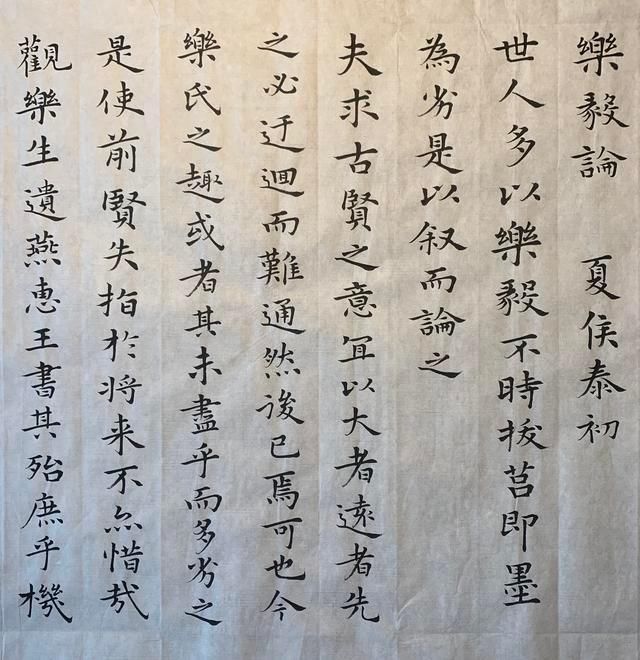 樂毅論　夏侯泰初
世人多以樂毅不時拔莒即墨
為劣是以叙而論之
夫求古賢之意宜以大者遠者先
之必迂迴而難通然後已焉可也今
樂氏之趣或者其未盡乎而多劣之
是使前賢失指於将来不亦惜哉
觀樂生遺燕惠王書其殆庶乎機